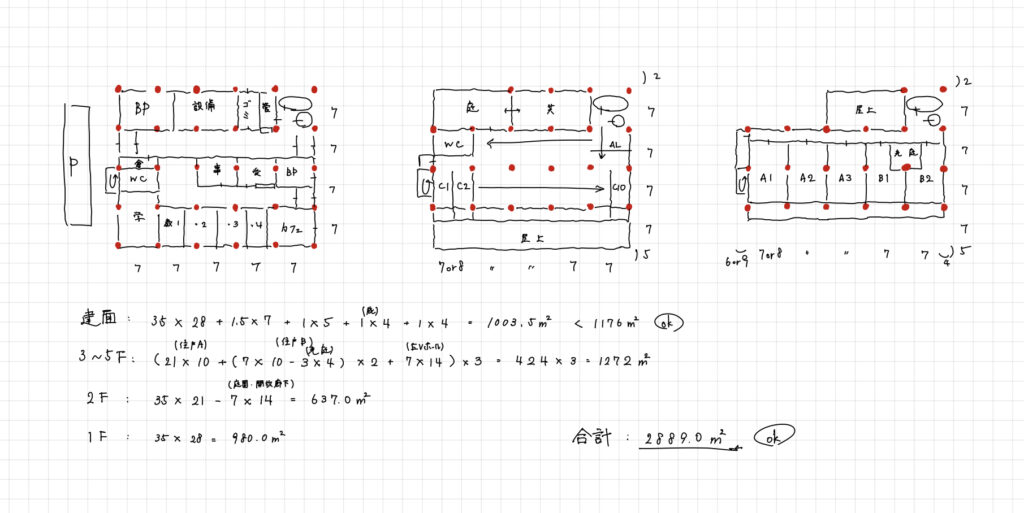 )2
)2
BP
設備
ゴミ
管
7
庭
共
7
屋上
7
7
WC
AL
7
7
P
倉
WC
事
受
BP
7
C1
C2
C10
7
光庭
A1
A2
A3
B1
B2
7
学
教1
・2
・3
・4
カフェ
7
屋上
7
7
7
7
7
7
7
7or8
〃
〃
7
7
)5
6or9
7or8
〃
〃
7
7
4
)5
建面: 35 × 28 + 1.5 × 7 + 1 × 5 + 1 × 4 + 1 × 4 = 1003.5m² < 1176m² ok
(庇)
(住戸A)
(住戸B)
(光庭)
(EVホール)
3~5F: (21 × 10 + (7 × 10 - 3 × 4) × 2 + 7 × 14) × 3 = 424 × 3 = 1272 m²
(庭園・開放廊下)
2F: 35 × 21 - 7 × 14 = 637.0m²
1F: 35 × 28 = 980.0m²
合計: 2889.0 m² ok